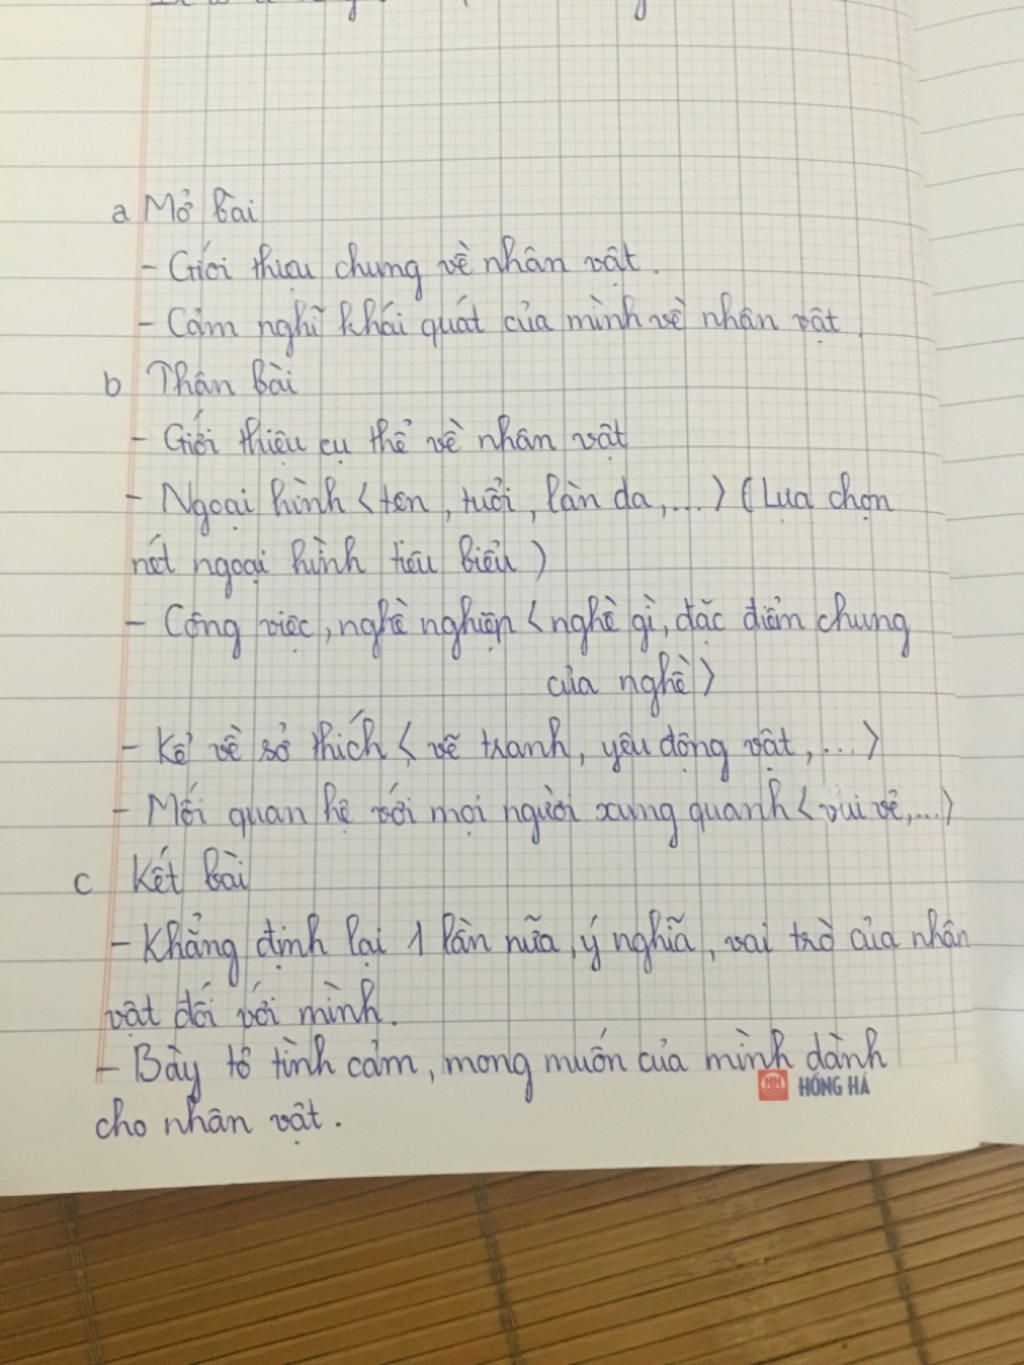 a Mở bài
- Giới thiệu chung về nhân vật.
- Cảm nghĩ khái quát của mình về nhân vật.
b Thân bài
- Giới thiệu cụ thể về nhân vật
- Ngoại hình < tên, tuổi, làn da,...> (Lựa chọn
nét ngoại hình tiêu biểu)
- Công việc, nghề nghiệp < nghề gì, đặc điểm chung
của nghề >
- Kể về sở thích < vẽ tranh, yêu động vật,...>
- Mối quan hệ với mọi người xung quanh < vui vẻ,...>
c Kết bài
- Khẳng định lại 1 lần nữa, ý nghĩa, vai trò của nhân
vật đối với mình.
- Bày tỏ tình cảm, mong muốn của mình dành
HH HỒNG HÀ
cho nhân vật.